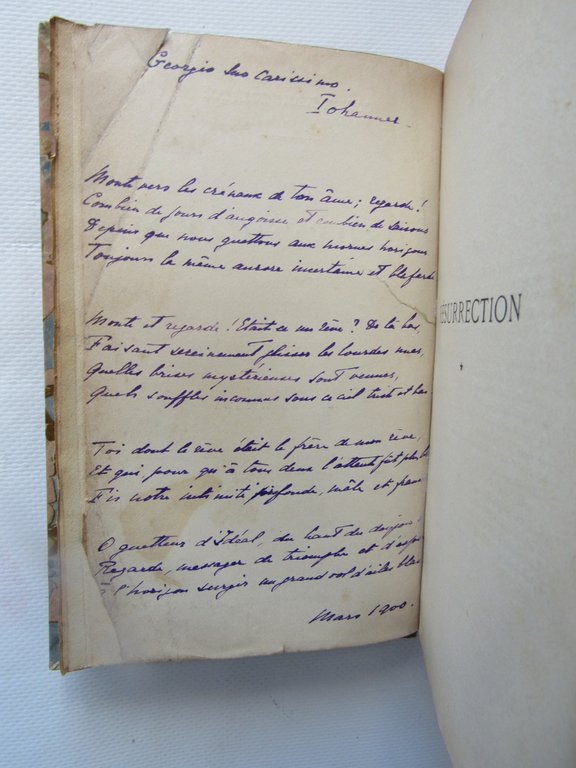 Georgio suo carissimo.
Iohannes.
Monte vers les créneaux de ton âme ; regarde !
Combien de jours d'angoisse et combien de saisons
Depuis que nous guettons aux mornes horizons
Toujours la même aurore incertaine et blafarde
Monte et regarde ! Etait ce un rêve ? De là bas,
Faisant sereinement glisser les lourdes nues,
Quelles brises mystérieuses sont venues,
Quels souffles inconnus sous ce ciel triste et bas
Toi dont le rêve était le frère de mon rêve,
Et qui pour qu'à tous deux l'attente fût plus
Fis notre intimité profonde, mâle et
O guetteur d'Idéal, du haut du donjon !
Regarde, messager de triomphe et
à l'horizon surgir un grand vol d'ailes
Mars 1900.
RESURRECTION